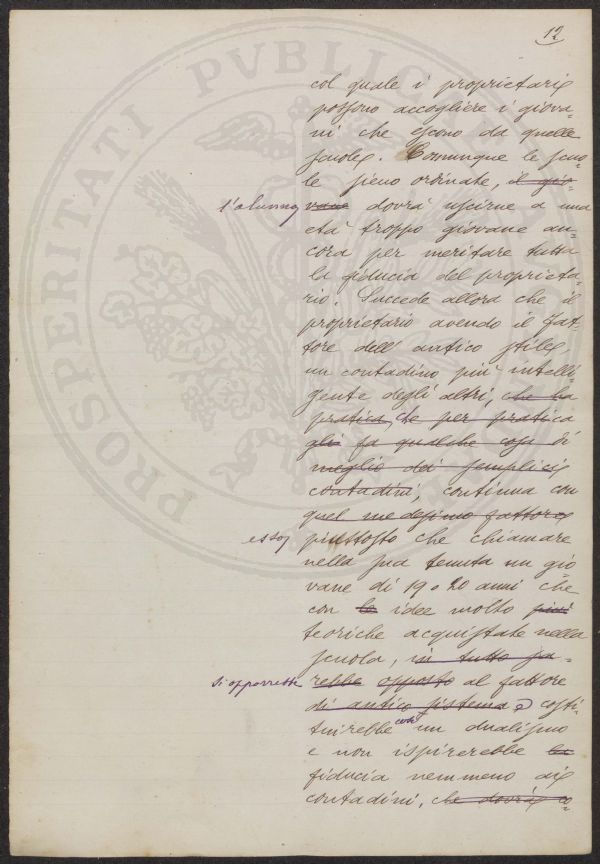 12
col quale i proprietarii
possono accogliere i giova-
ni che escono da quelle
scuole. Comunque le scuo-
le sieno ordinate, il gio-
l'alunno vane dovrà uscirne a una
età troppo giovane an-
cora per meritare tutta
la fiducia del proprieta-
rio. Succede allora che il
proprietario avendo il fat-
tore dell'antico stile,
un contadino più intelli-
gente degli altri, che ha
pratica, che per pratica
gli fa qualche cosa di
meglio dei semplici
contadini, continua con
quel medesimo fattore
esso, piuttosto che chiamare
nella sua tenuta un gio-
vane di 19 o 20 anni che
con le idee molto più
teoriche acquistate nella
scuola, in tutto sa-
si opporrebbe rebbe opposto al fattore
di antico sistema e costi-
tuirebbe così un dualismo
e non ispirerebbe la
fiducia nemmeno ai
contadini, che dovrà co-
PROSPERITATI PVBLICAE